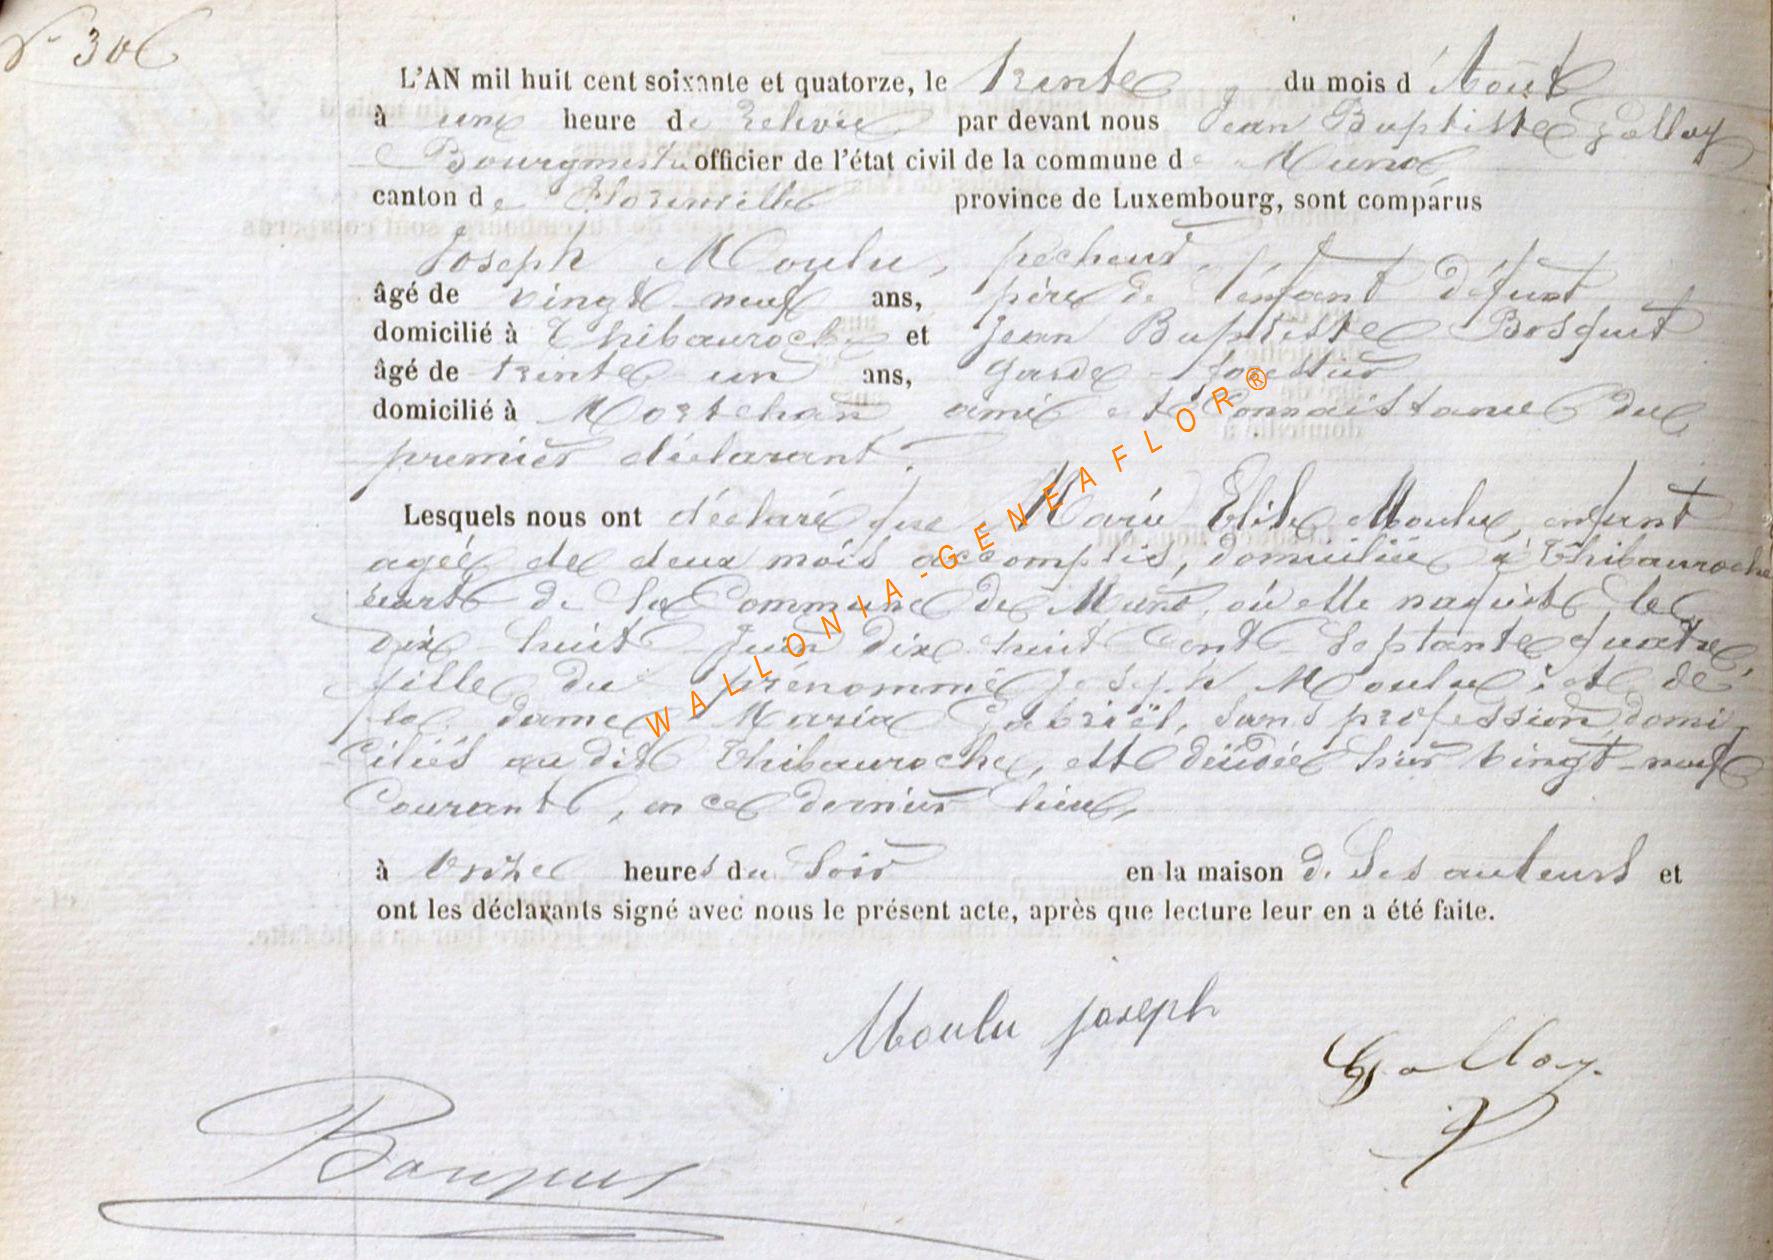 N° 306
L'AN mil huit cent soixante et quatorze, le trente du mois d'Août
à une heure de relevée par devant nous Jean Baptiste Golloy
Bourgmestre officier de l'état civil de la commune de Muno
canton de Florenville province de Luxembourg, sont comparus
Joseph Moulu, pêcheur,
âgé de vingt-neuf ans, père de l'enfant défunt
domicilié à Thibauroche et Jean Baptiste Bosquet
âgé de trente un ans, garde-forestier
domicilié à Mortehan, ami et connaissance du
premier déclarant.
Lesquels nous ont déclaré que Marie Elise Moulu, enfant
agée de deux mois accomplis, domiciliée à Thibauroche
écart de la Commune de Muno, où elle naquit le
dix-huit Juin dix-huit cent septante quatre,
fille du prénommé Joseph Moulu et de
la dame Maria Gabriël, sans profession, domi-
ciliés au dit Thibauroche, est décédée hier vingt-neuf
courant, en ce dernier lieu,
à onze heures du soir en la maison de ses auteurs et
ont les déclarants signé avec nous le présent acte, après que lecture leur en a été faite.
Moulu joseph
Golloy
WALLONIA-GENEAFLOR®